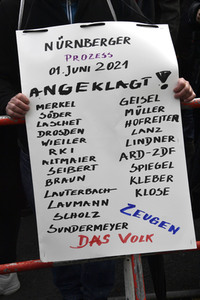 NÜRNBERGER
PROZESS
01. JUNI 2021
ANGEKLAGT!
MERKEL
SÖDER
LASCHET
DROSDEN
WIELER
RKI
ALTMAIER
SEIBERT
BRAUN
LAUTERBACH
LAUMANN
SCHOLZ
SUNDERMEYER
GEISEL
MÜLLER
HOFREITER
LANZ
LINDNER
ARD-ZDF
SPIEGEL
KLEBER
KLOSE
ZEUGEN
DAS VOLK